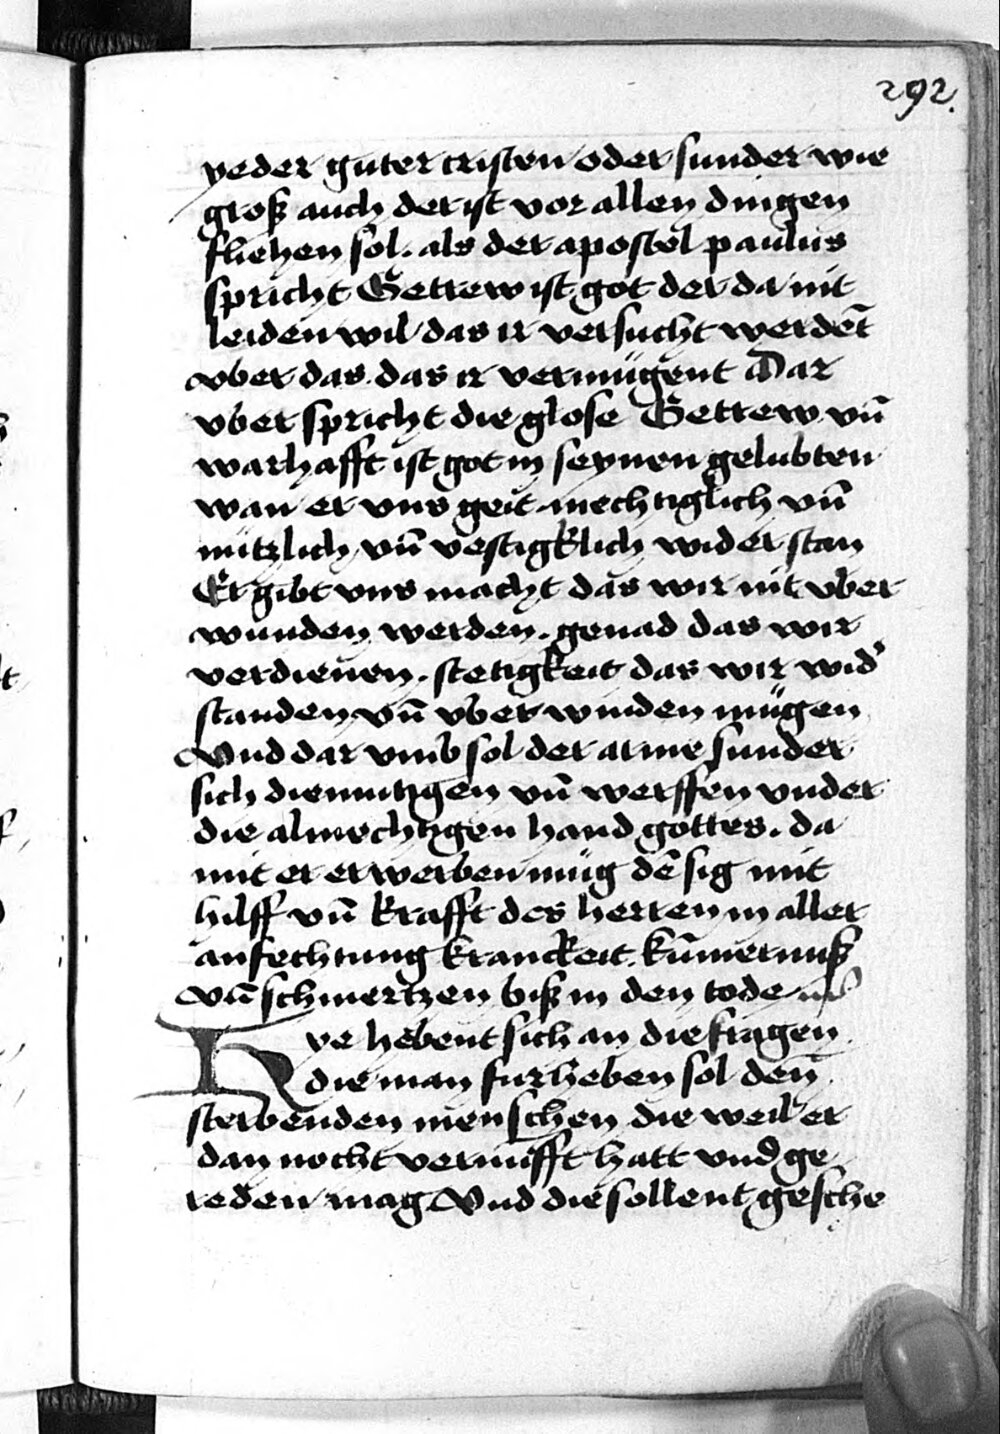 292.
yeder guter cristen oder sunder wie
groß auch der ist vor allen dingen
fliehen sol. als der apostel paulus
spricht Getrew ist got der da nit
leiden wil das ir versucht werdēt
vber das. das ir vermügent Dar
vber spricht die glose Getrew vn̄
warhafft ist got in seynen gelubten
wan er vns geit mechtiglich vn̄
nützlich vn̄ vestigklich wider stan
Er gibt vns macht das wir nit vber
wunden werden. genad das wir
verdienen. stetigkeit das wir wid'
standen vn̄ vber winden mügen
Vnd dar vmb sol der arme sunder
sich diemutigen vn̄ werffen vnder
die almechtigen hand gottes. da
mit er erwerben müg dē sig mit
hilff vn̄ krafft des herren in aller
anfechtung kranckeit. kūmernuß
vn̄ schmertzen biß in den tode
ye hebent sich an die fragen
die man furheben sol den
sterbenden menschen die weil er
dan nocht vernüfft hatt vnd ge
reden mag Vnd die sollent gesche